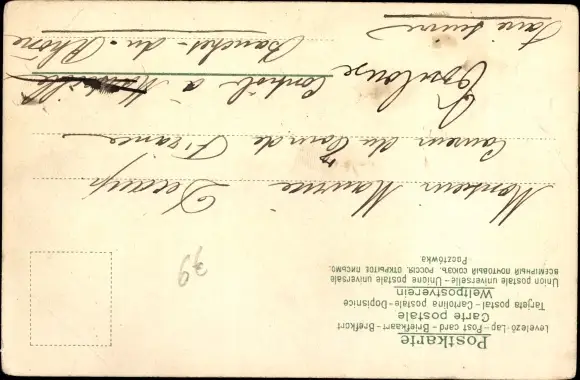 Postkarte
Levelező-Lap-Post card-Briefkaart-Brefkort
Carte postale
Tarjeta postal-Cartolina postale-Dopisnice
Weltpostverein
Union postale universelle-Unione postale universale
ВСЕМІРНЫЙ ПОЧТОВЫЙ СОЮЗЪ. РОССІЯ. ОТКРЫТОЕ ПИСЬМО.
Pocztówka.
39
Monsieur Maurice Decamp
Coureur du Tour de France
Toulouse Contrôle à
Bouches-du-Rhône
faire suivre